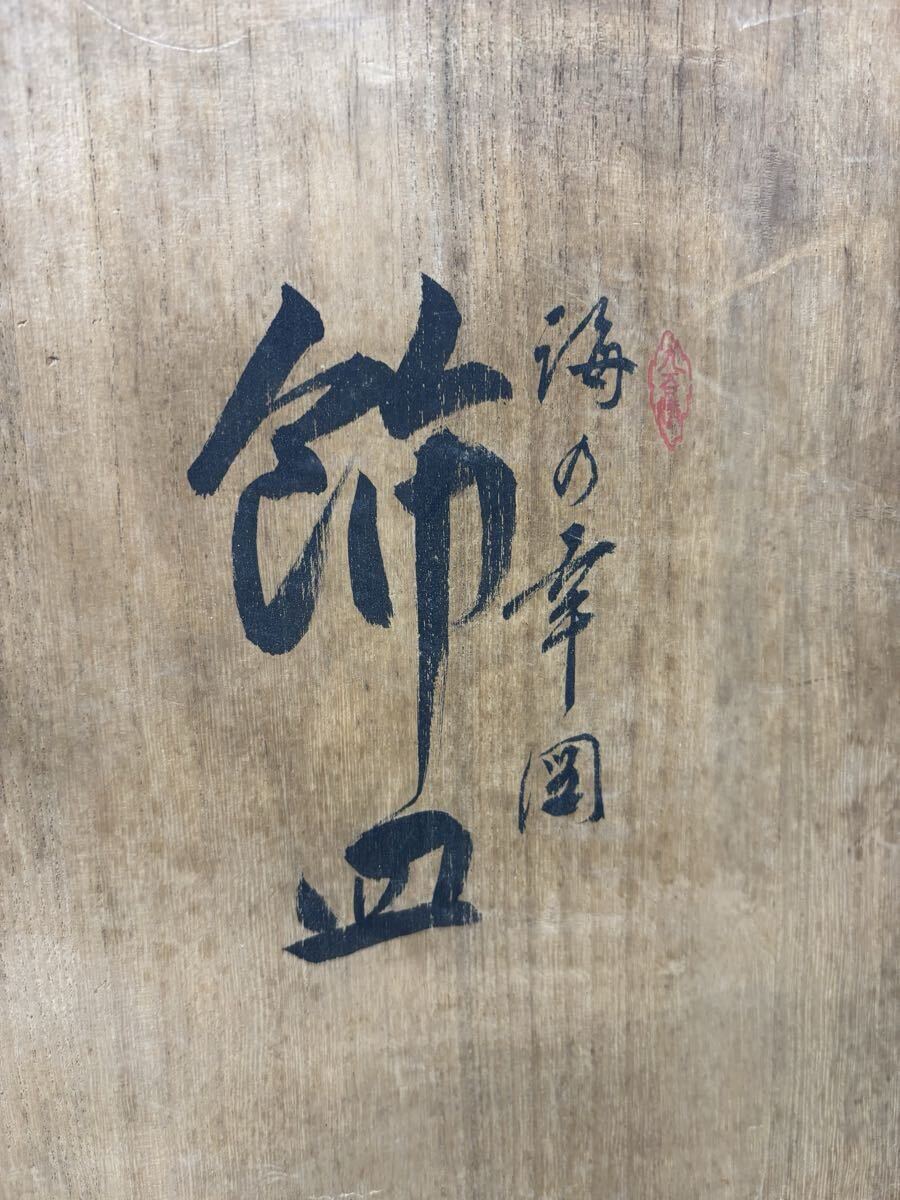 海の幸図
飾皿